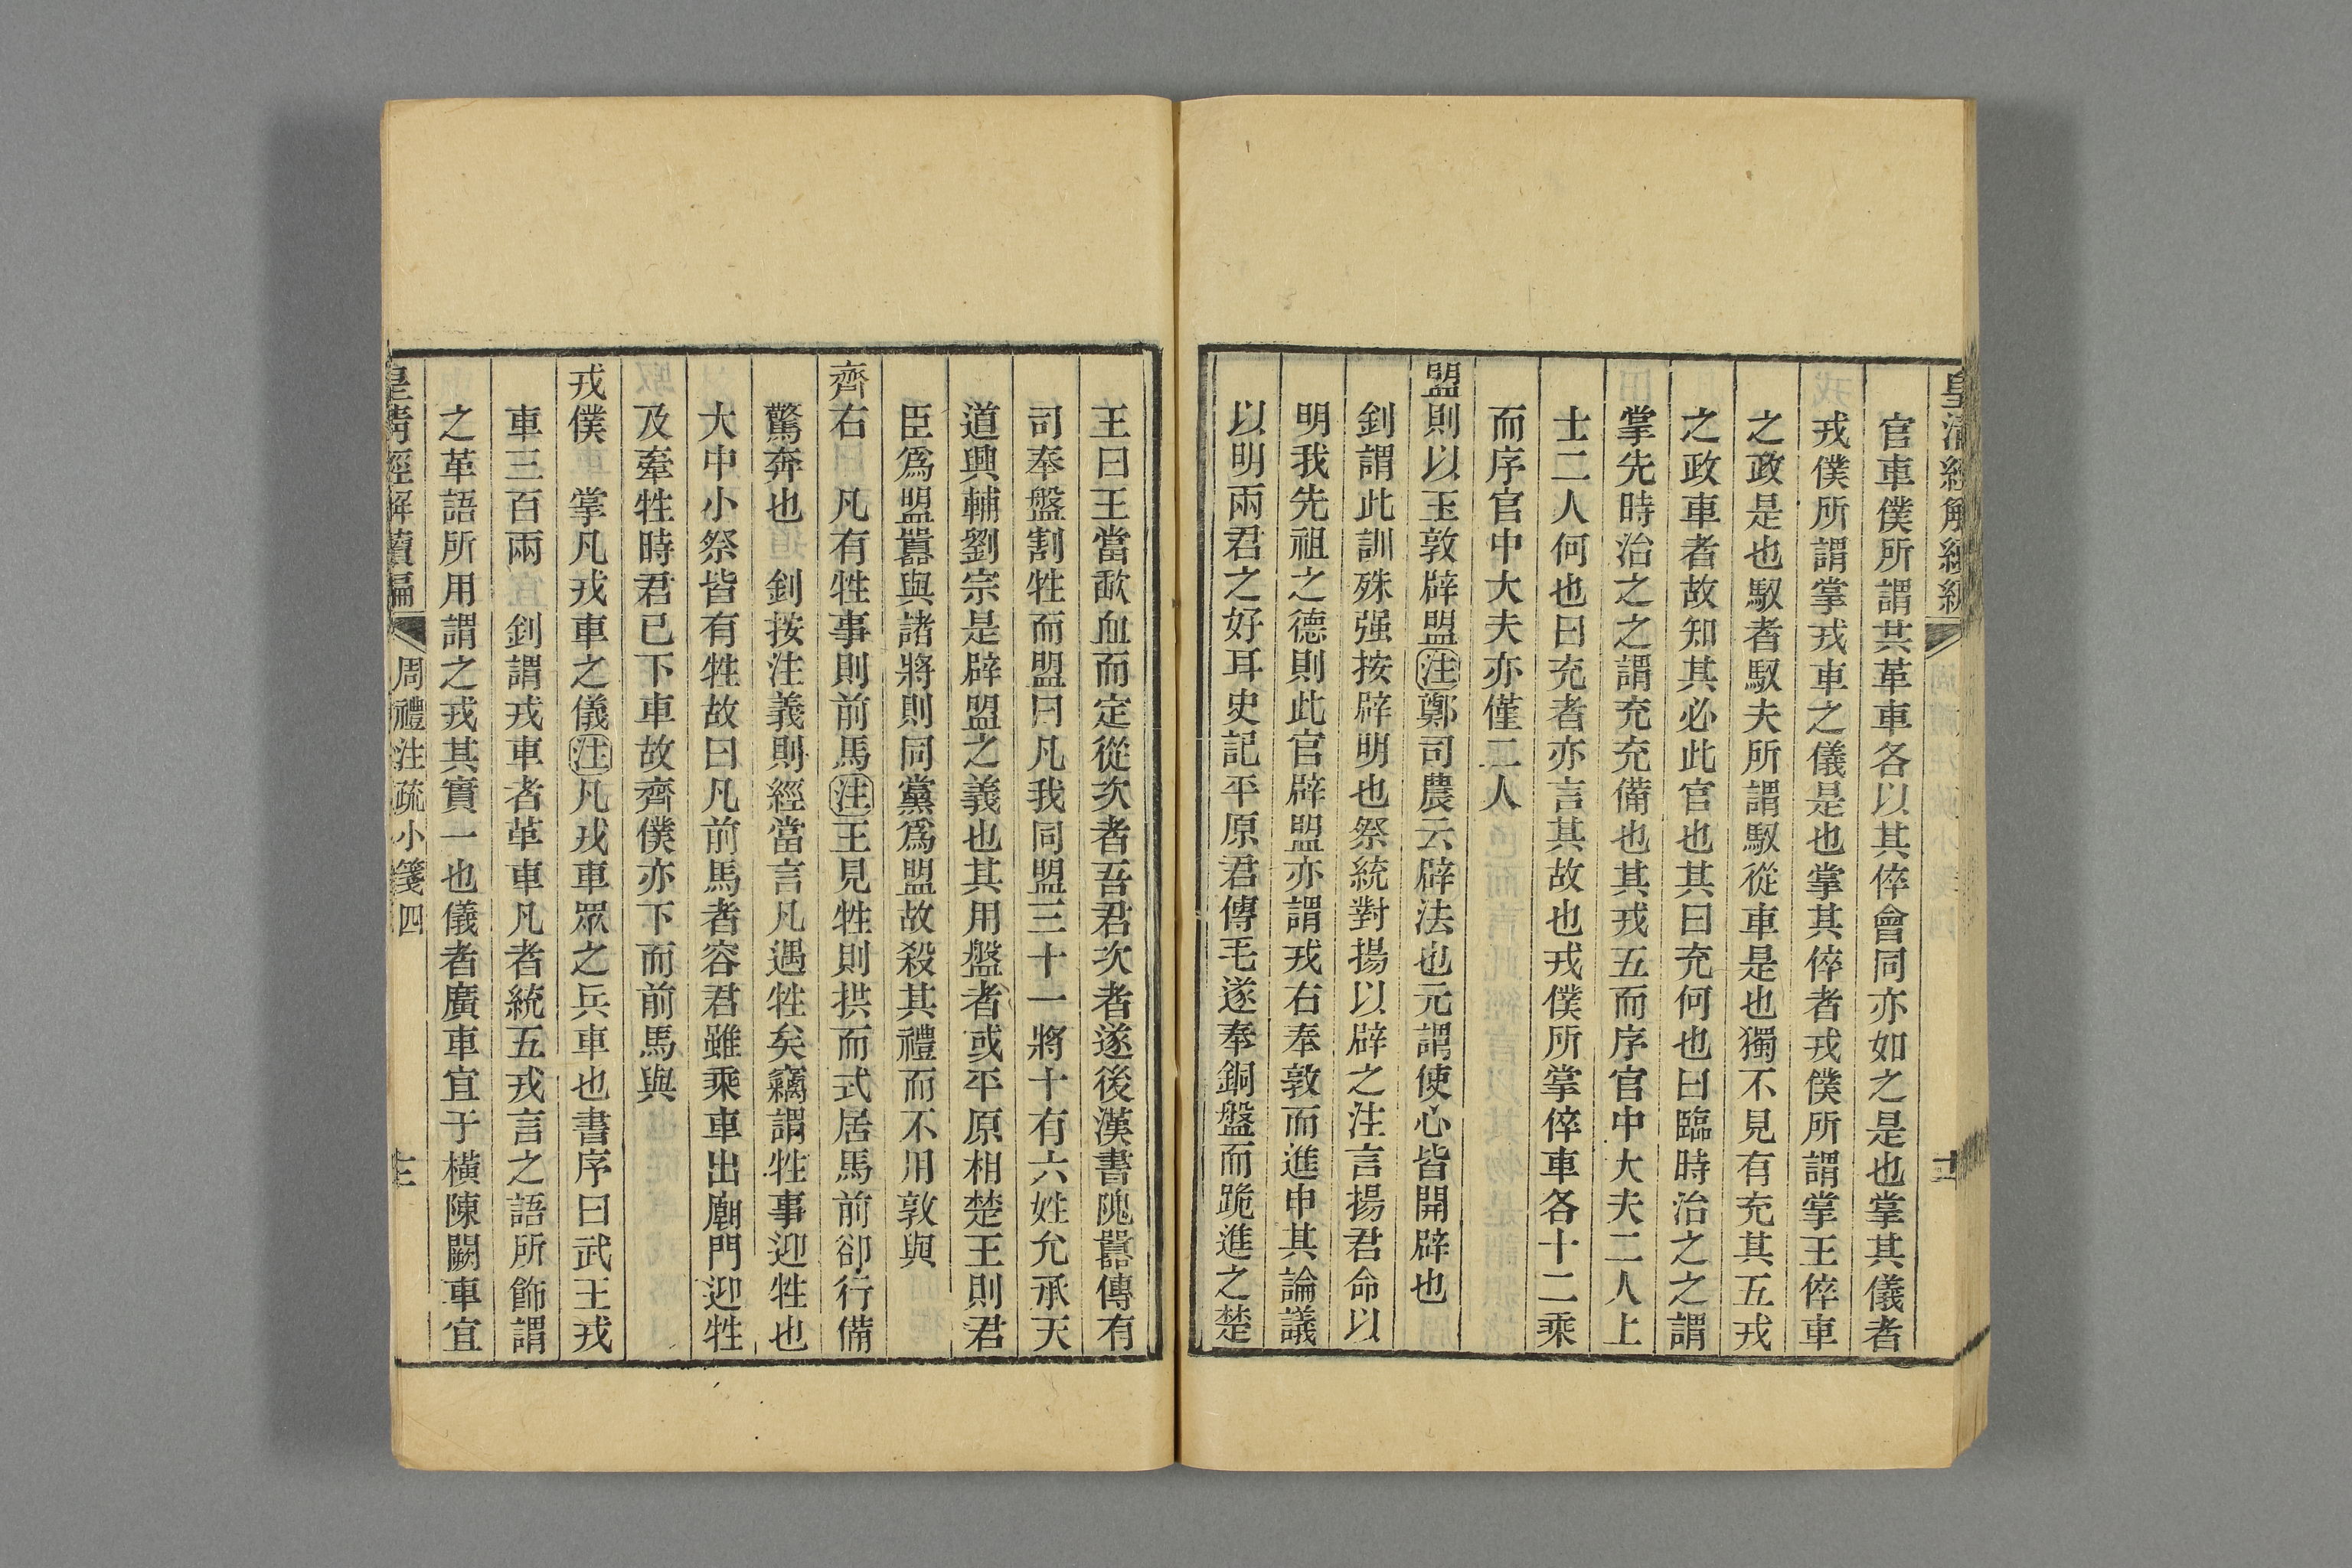 官車僕所謂其革車各以其倅會同亦如之是也掌其儀者
戎僕所謂掌戎車之儀是也掌其倅者戎僕所謂掌王倅車
之政是也馭者馭夫所謂馭從車是也獨不見有充其五戎
之政車者故知其必此官也其曰充何也曰臨時治之之謂
掌先時治之之謂充充備也其戎五而序官中大夫二人上
士二人何也曰充者亦言其故也戎僕所掌倅車各十二乘
而序官中大夫亦僅二人
盟則以玉敦辟盟注鄭司農云辟法也元謂使心皆開辟也
釗謂此訓殊强按辟明也祭統對揚以辟之注言揚君命以
明我先祖之德則此官辟盟亦謂戎右奉敦而進申其論議
以明兩君之好耳史記平原君傳毛遂奉銅盤而跪進之楚
王曰王當歃血而定從次者吾君次者遂後漢書隗囂傳有
司奉盤割牲而盟曰凡我同盟三十一將十有六姓允承天
道興輔劉宗是辟盟之義也其用盤者或平原相楚王則君
臣爲盟囂與諸將則同黨爲盟故殺其禮而不用敦與
齊右 凡有牲事則前馬注王見牲則拱而式居馬前卻行備
驚奔也 釗按注義則經當言凡遇牲矣竊謂牲事迎牲也
大中小祭皆有牲故曰凡前馬者容君雖乘車出廟門迎牲
及牽牲時君已下車故齊僕亦下而前馬與
戎僕 掌凡戎車之儀注凡戎車眾之兵車也書序曰武王戎
車三百兩 釗謂戎車者革車凡者統五戎言之語所飾謂
之革語所用謂之戎其實一也儀者廣車宜于橫陳闕車宜
皇清經解續編
周禮注疏小箋四